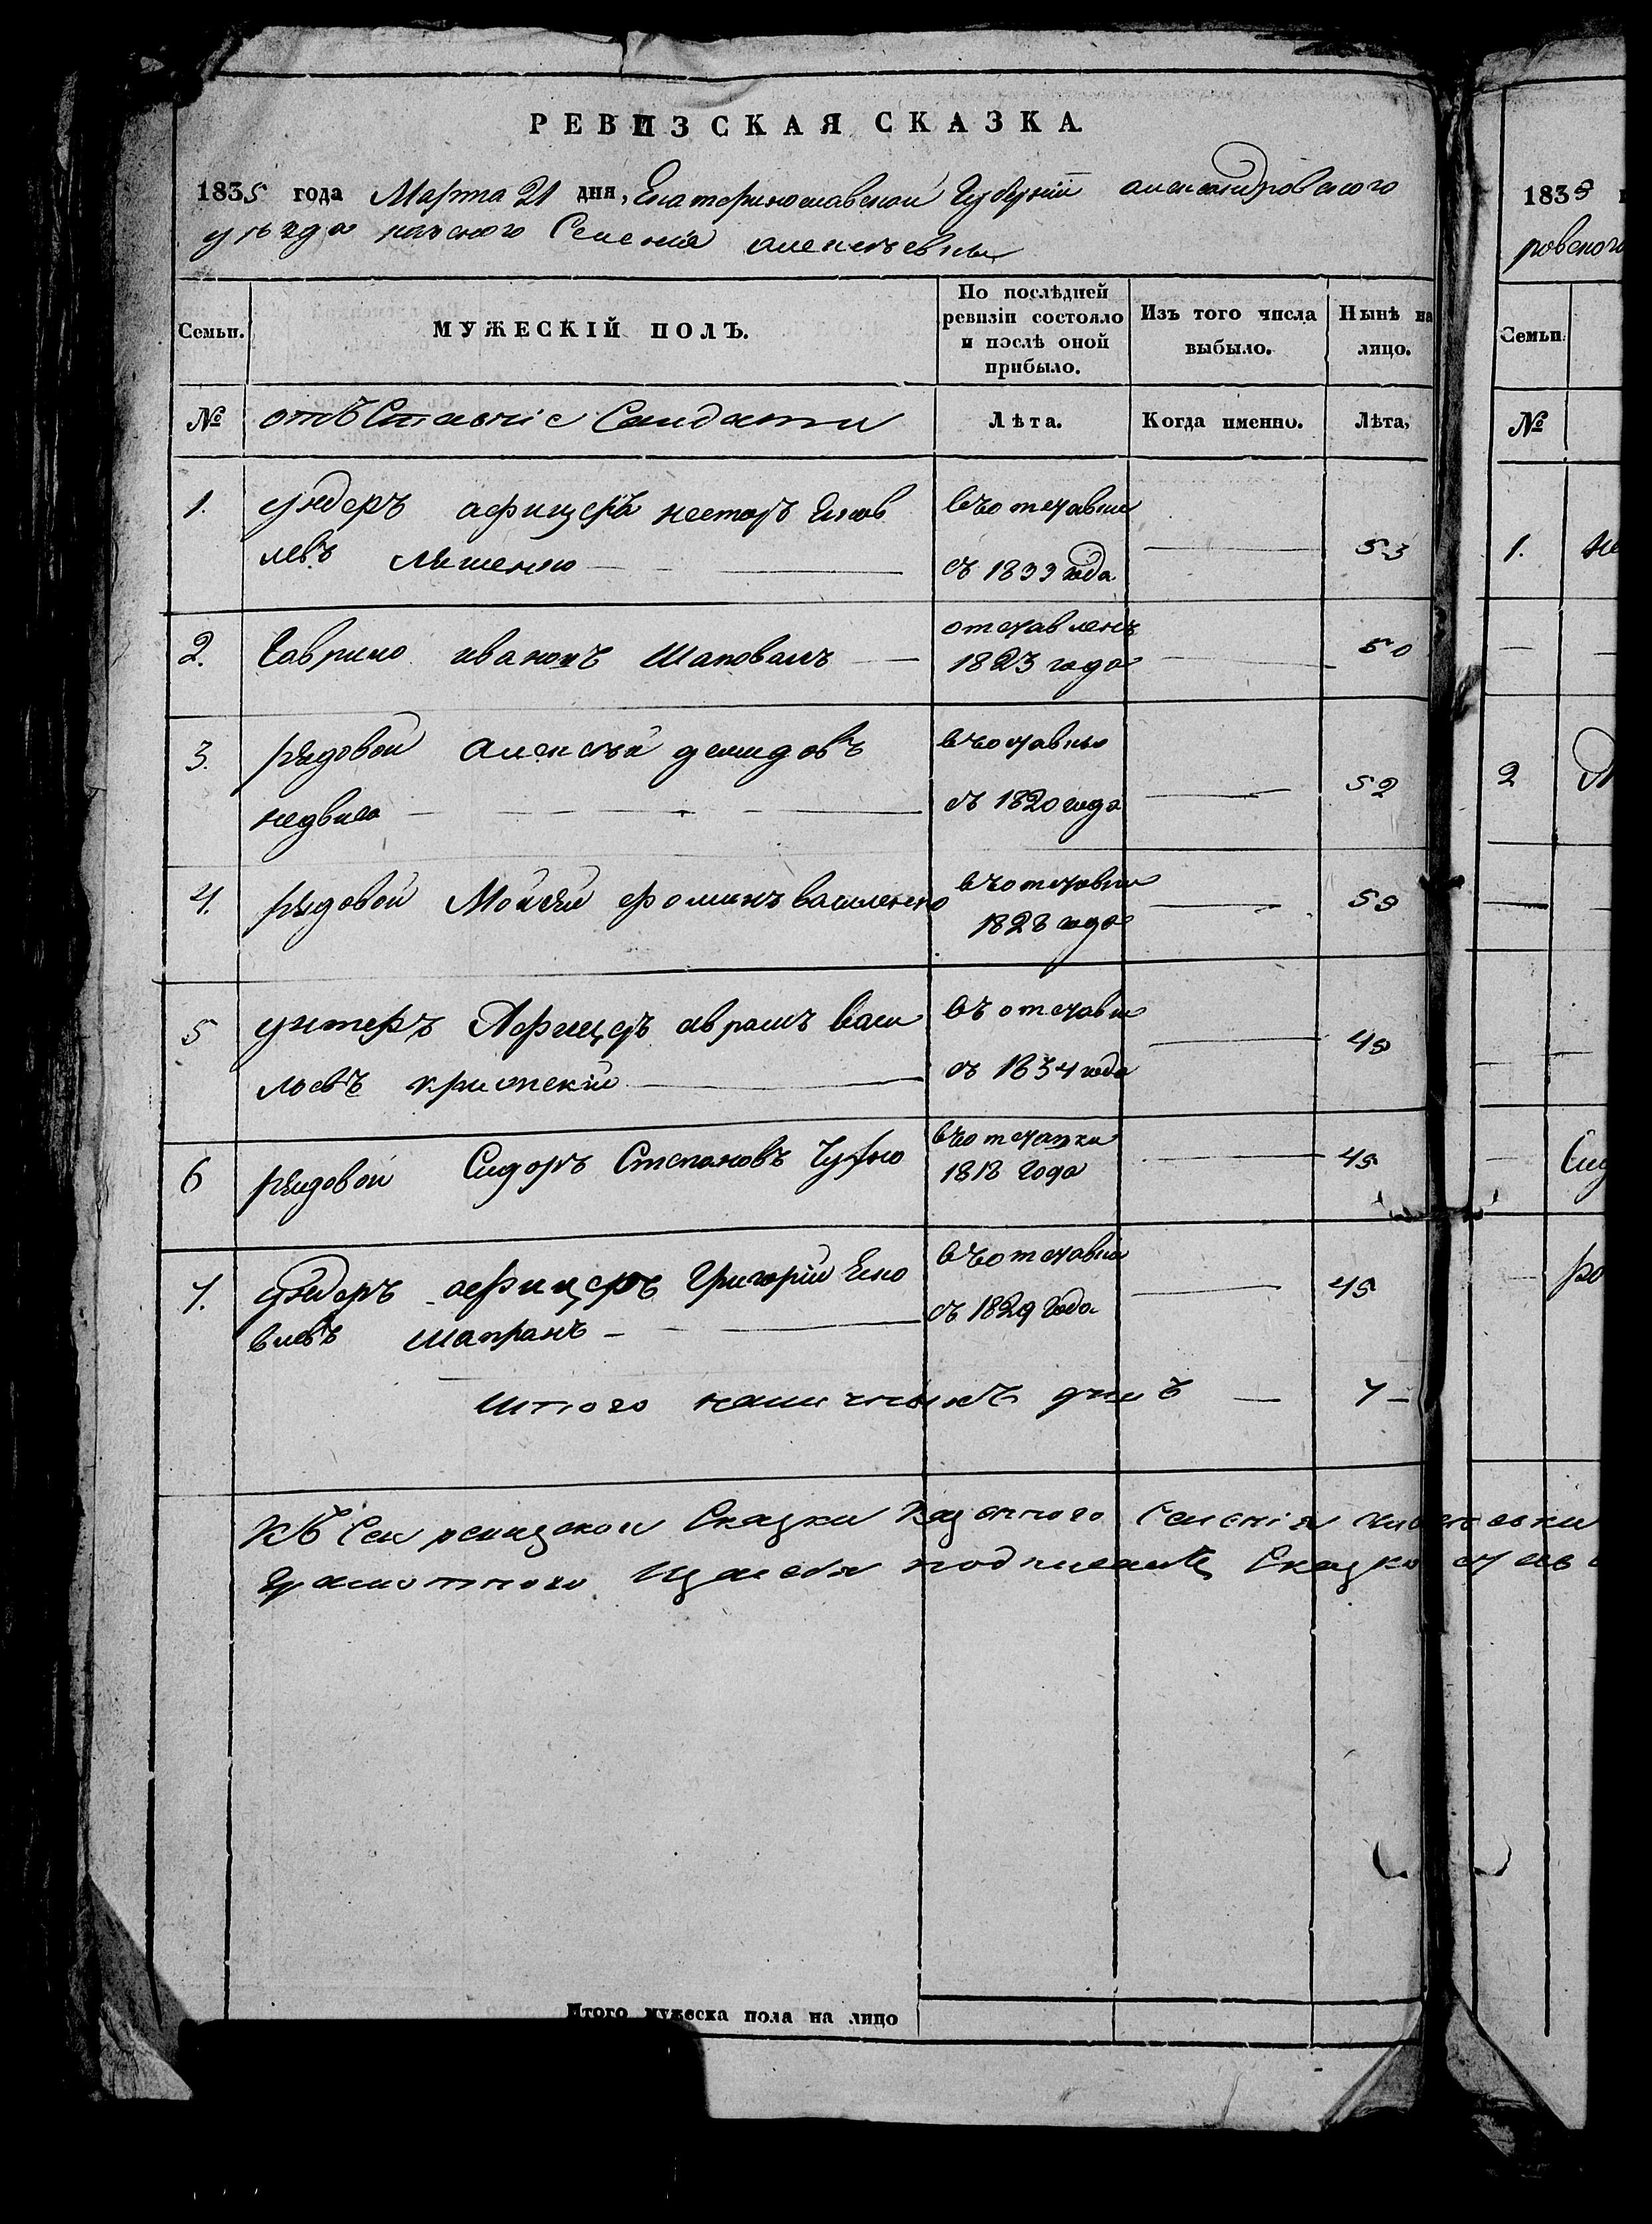 РЕВИЗСКАЯ СКАЗКА.
1835 года Марта 21 дня, Екатеринославской Губерній александровского
уезда Селенія алексеевки
Семьи. МУЖЕСКІЙ ПОЛЪ. По послѣдней ревизіи состояло и послѣ оной прибыло. Изъ того числа выбыло. Нынѣ на лицо.
№ отъставніе Салдати Лѣта. Когда именно. Лѣта,
1. ундеръ афицеръ несторъ Яков въотставки
левъ съ 1833 года 53
2. Гаврило ивановъ Шаповалъ отставленъ
1823 года 50
3. рядовой Алексѣй демидовъ
недвига съ 1820 года 52
4. рядовой Мойсѣй фоминъ василенко въотставки
1828 года
5 унтеръ Афицеръ аврамъ Васи въ отставки
льевъ съ 1834 года
6 рядовой Сидоръ Степановъ въотставки
1818 года 45
7. ундеръ афицеръ Григорій Яко въотставки
влевъ шапранъ съ 1829 Года 45
Итого наличныхъ душъ 7
Къ Сей ревизской Сказки Казенного Селенія
подписалъ
Итого мужеска пола на лицо
1835
ровского
Семьи.
№
1.
2
Сид